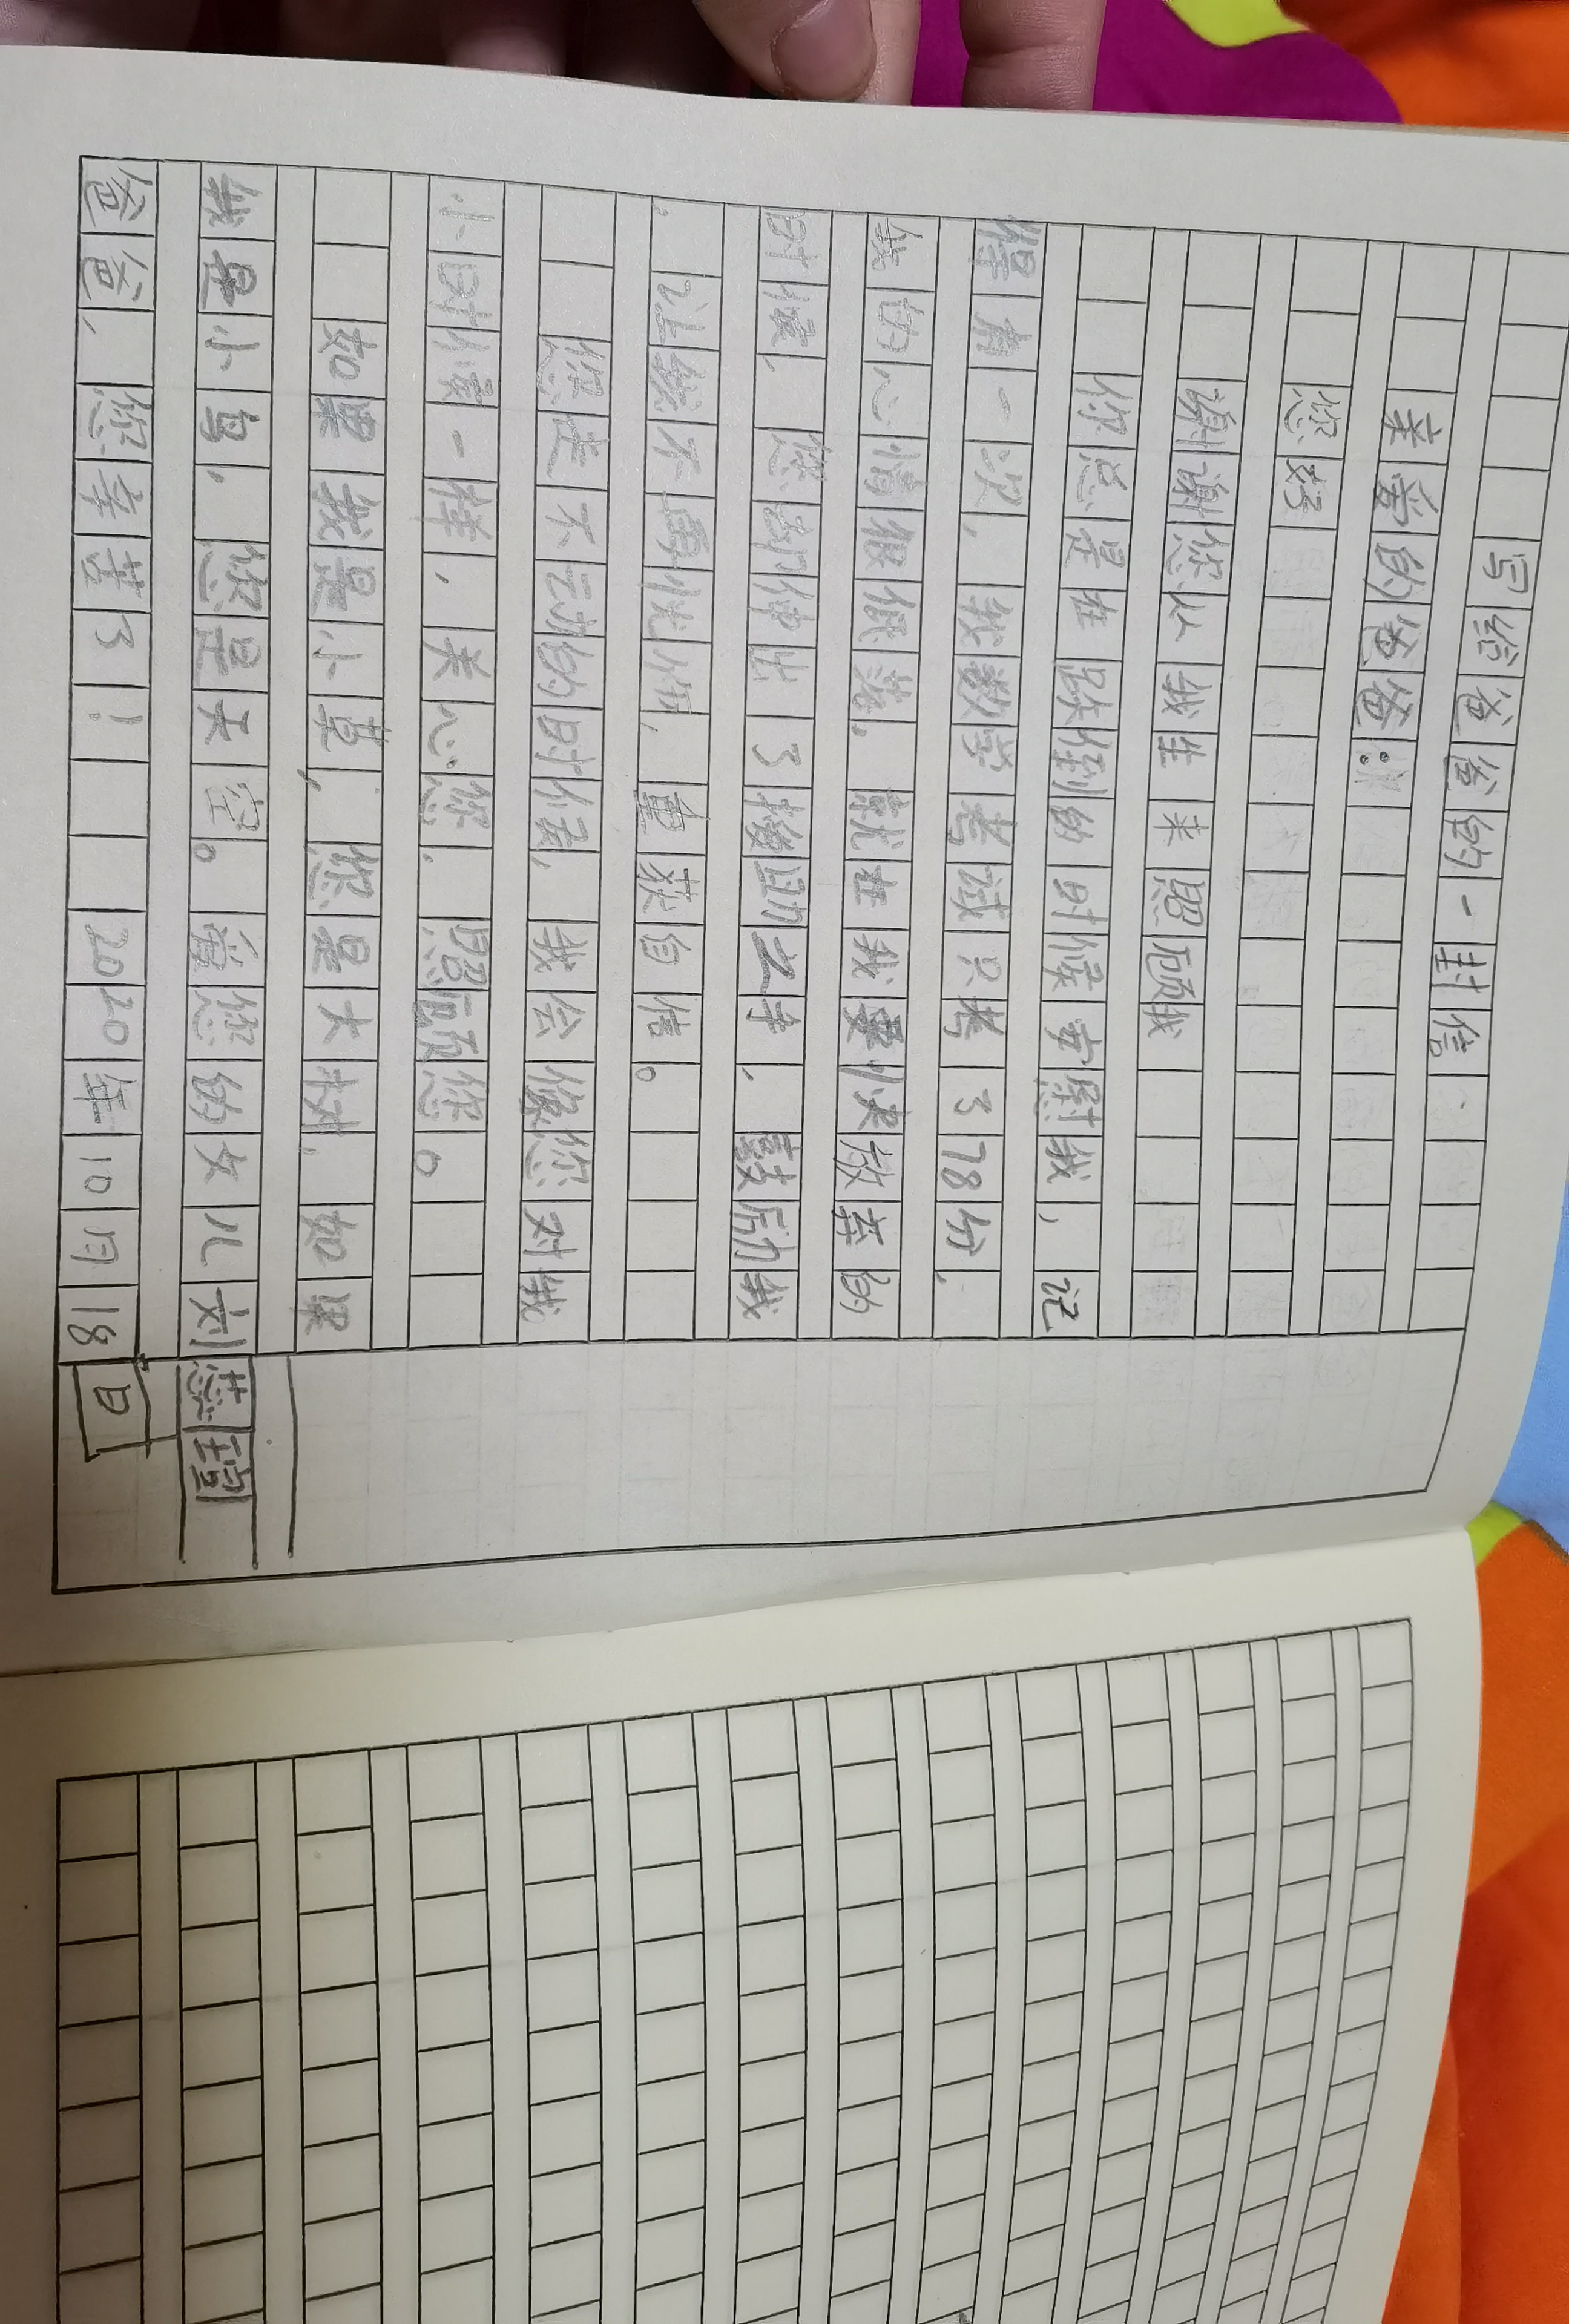 写给爸爸的一封信
亲爱的爸爸:
您好
谢谢您从我生来照顾我
你总是在跌倒的时候安慰我,记
得有一次,我数学考试只考了78份,
我的心情很低落,就在我要快放弃的
时候,您却伸出了援助之手,鼓励我
,让我不单忧伤,重获自信。
您走不动的时候,我会像您对我
小时候一样,关心您,照顾您。
如果我是小草,您是大树,如果
我是小鸟,您是天空。爱您的女儿刘
爸爸,您辛苦了! 2020年10月18日